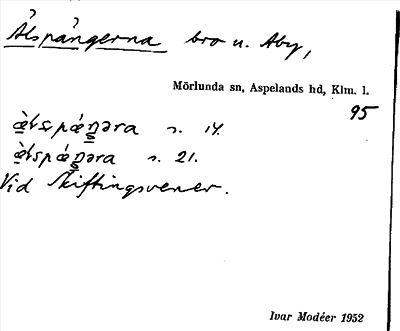 Ålspångerna bro u. Åby,
Mörlunda sn, Aspelands hd, Klm. l.
95
s. 14.
s. 21.
Vid Skiftingsvener.
Ivar Modéer 1952